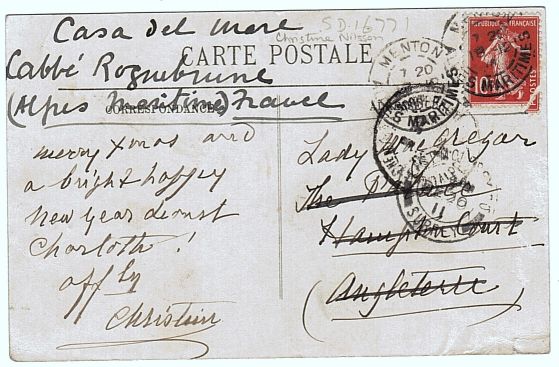 Casa del Mare
S.D.16771
Christine Nilsson
CARTE POSTALE
Cabbé Roquebrune
(Alpes Maritime) France
CORRESPONDANCE
Merry Xmas and
a bright happy
New Year dearest
Charlotte!
affly
Christine
MENTON
7 20
RÉPUBLIQUE FRANÇAISE
10
POSTES
S MARITIMES
Lady McGregor
The
Hampton Court
(Angleterre)